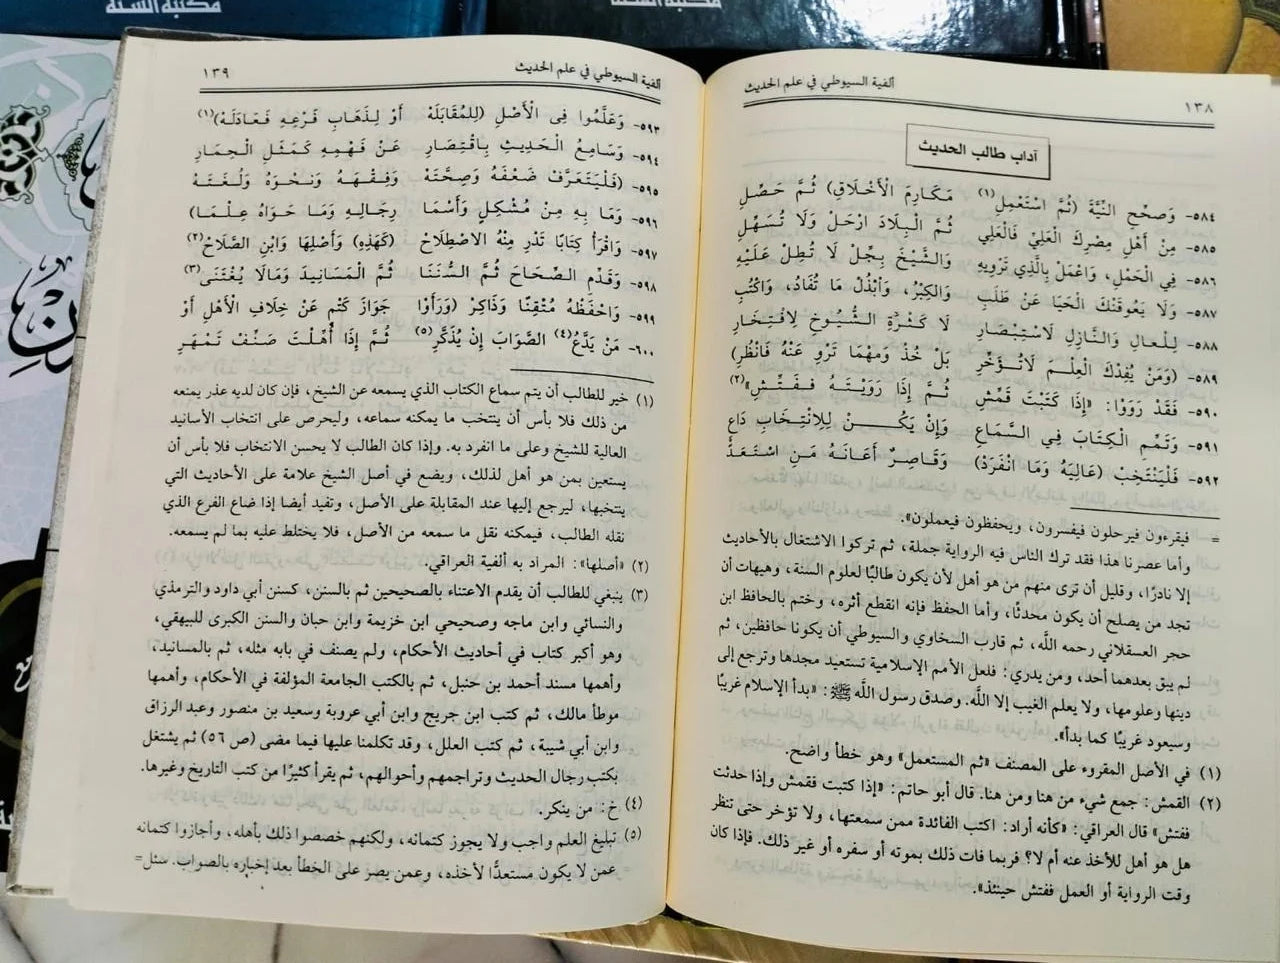 مكتبة السنة
مكتبة السنة
ألفية السيوطي في علم الحديث
١٣٨
آداب طالب الحديث
٥٨٤- وَصَحِّحِ النِّيَّةَ (ثُمَّ اسْتَعْمِلِ(١) مَكَارِمَ الْأَخْلَاقِ) ثُمَّ حَصِّلِ
٥٨٥- مِنْ أَهْلِ مِصْرِكَ الْعَلِيَّ فَالْعَلِي ثُمَّ الْبِلَادَ ارْحَلْ وَلَا تُسَهِّلِ
٥٨٦- فِي الْحَمْلِ، وَاعْمَلْ بِالَّذِي تَرْوِيهِ وَالشَّيْخَ بَجِّلْ لَا تُطِلْ عَلَيْهِ
٥٨٧- وَلَا يَعُوقَنْكَ الْحَيَا عَنْ طَلَبِ وَالْكِبْرُ، وَابْذُلْ مَا تُفَادُ، وَاكْتُبِ
٥٨٨- لِلْعَالِ وَالنَّازِلِ لَاسْتِبْصَارِ لَا كَثْرَةِ الشُّيُوخِ لِافْتِخَارِ
٥٨٩- (وَمَنْ يُفِدْكَ الْعِلْمَ لَاتُؤَخِّرِ بَلْ خُذْ وَمَهْمَا تَرْوِ عَنْهُ فَانْظُرِ)
٥٩٠- فَقَدْ رَوَوْا: «إِذَا كَتَبْتَ قَمِّشِ ثُمَّ إِذَا رَوَيْتَهُ فَفَتِّشِ»(٢)
٥٩١- وَتَمِّمِ الْكِتَابَ فِي السَّمَاعِ وَإِنْ يَكُنْ لِلِانْتِخَابِ دَاعِ
٥٩٢- فَلْيَنْتَخِبْ (عَالِيَهُ وَمَا انْفَرَدْ) وَقَاصِرٌ أَعَانَهُ مَنِ اسْتَعَدَّ
= فيقرءون فيرحلون فيفسرون، ويحفظون فيعملون».
وأما عصرنا هذا فقد ترك الناس فيه الرواية جملة، ثم تركوا الاشتغال بالأحاديث
إلا نادرًا، وقليل أن ترى منهم من هو أهل لأن يكون طالبًا لعلوم السنة، وهيهات أن
تجد من يصلح أن يكون محدثًا، وأما الحفظ فإنه انقطع أثره، وختم بالحافظ ابن
حجر العسقلاني رحمه الله، ثم قارب السخاوي والسيوطي أن يكونا حافظين، ثم
لم يبق بعدهما أحد، ومن يدري: فلعل الأمم الإسلامية تستعيد مجدها وترجع إلى
دينها وعلومها، ولا يعلم الغيب إلا الله. وصدق رسول الله ﷺ: «بدأ الإسلام غريبًا
وسيعود غريبًا كما بدأ».
(١) في الأصل المقروء على المصنف «ثم المستعمل» وهو خطأ واضح.
(٢) القمش: جمع شيء من هنا ومن هنا. قال أبو حاتم: «إذا كتبت فقمش وإذا حدثت
ففتش» قال العراقي: «كأنه أراد: اكتب الفائدة ممن سمعتها، ولا تؤخر حتى تنظر
هل هو أهل للأخذ عنه أم لا؟ فربما فات ذلك بموته أو سفره أو غير ذلك. فإذا كان
وقت الرواية أو العمل ففتش حينئذ».
ألفية السيوطي في علم الحديث
١٣٩
٥٩٣- وَعَلَّمُوا فِى الْأَصْلِ (لِلمُقَابَلَهْ أَوْ لِذَهَابِ فَرْعِهِ فَعَادَلَهُ)(١)
٥٩٤- وَسَامِعُ الْحَدِيثِ بِاقْتِصَارِ عَنْ فَهْمِهِ كَمَثَلِ الْحِمَارِ
٥٩٥- (فَلْيَتَعَرَّفْ ضَعْفَهُ وَصِحَّتَهْ وَفِقْهَهُ وَنَحْوَهُ وَلُغَتَهْ
٥٩٦- وَمَا بِهِ مِنْ مُشْكِلٍ وَأَسْمَا رِجَالِهِ وَمَا حَوَاهُ عِلْمَا)
٥٩٧- وَاقْرَأْ كِتَابًا تَدْرِ مِنْهُ الِاصْطِلَاحْ (كَهَذِهِ) وَأَصْلِهَا وَابْنِ الصَّلَاحْ(٢)
٥٩٨- وَقَدِّمِ الصِّحَاحَ ثُمَّ السُّنَنَا ثُمَّ الْمَسَانِيدَ وَمَالَا يُغْتَنَى(٣)
٥٩٩- وَاحْفَظْهُ مُتْقِنًا وَذَاكِرْ (وَرَأَوْا جَوَازَ كَتْمٍ عَنْ خِلَافِ الْأَهْلِ أَوْ
٦٠٠- مَنْ يَدَّعُ(٤) الصَّوَابَ إِنْ يُذَكَّرِ(٥) ثُمَّ إِذَا أُهِّلْتَ صَنِّفْ تَمْهَرِ
(١) خير للطالب أن يتم سماع الكتاب الذي يسمعه عن الشيخ، فإن كان لديه عذر يمنعه
من ذلك فلا بأس أن ينتخب ما يمكنه سماعه، وليحرص على انتخاب الأسانيد
العالية للشيخ وعلى ما انفرد به. وإذا كان الطالب لا يحسن الانتخاب فلا بأس أن
يستعين بمن هو أهل لذلك، ويضع في أصل الشيخ علامة على الأحاديث التي
ينتخبها، ليرجع إليها عند المقابلة على الأصل، وتفيد أيضا إذا ضاع الفرع الذي
نقله الطالب، فيمكنه نقل ما سمعه من الأصل، فلا يختلط عليه بما لم يسمعه.
(٢) «أصلها»: المراد به ألفية العراقي.
(٣) ينبغي للطالب أن يقدم الاعتناء بالصحيحين ثم بالسنن، كسنن أبي داود والترمذي
والنسائي وابن ماجه وصحيحي ابن خزيمة وابن حبان والسنن الكبرى للبيهقي،
وهو أكبر كتاب في أحاديث الأحكام، ولم يصنف في بابه مثله، ثم بالمسانيد،
وأهمها مسند أحمد بن حنبل، ثم بالكتب الجامعة المؤلفة في الأحكام، وأهمها
موطأ مالك، ثم كتب ابن جريج وابن أبي عروبة وسعيد بن منصور وعبد الرزاق
وابن أبي شيبة، ثم كتب العلل، وقد تكلمنا عليها فيما مضى (ص ٥٦) ثم يشتغل
بكتب رجال الحديث وتراجمهم وأحوالهم، ثم يقرأ كثيرًا من كتب التاريخ وغيرها.
(٤) خ: من ينكر.
(٥) تبليغ العلم واجب ولا يجوز كتمانه، ولكنهم خصصوا ذلك بأهله، وأجازوا كتمانه
عمن لا يكون مستعدًّا لأخذه، وعمن يصر على الخطأ بعد إخباره بالصواب. سئل=